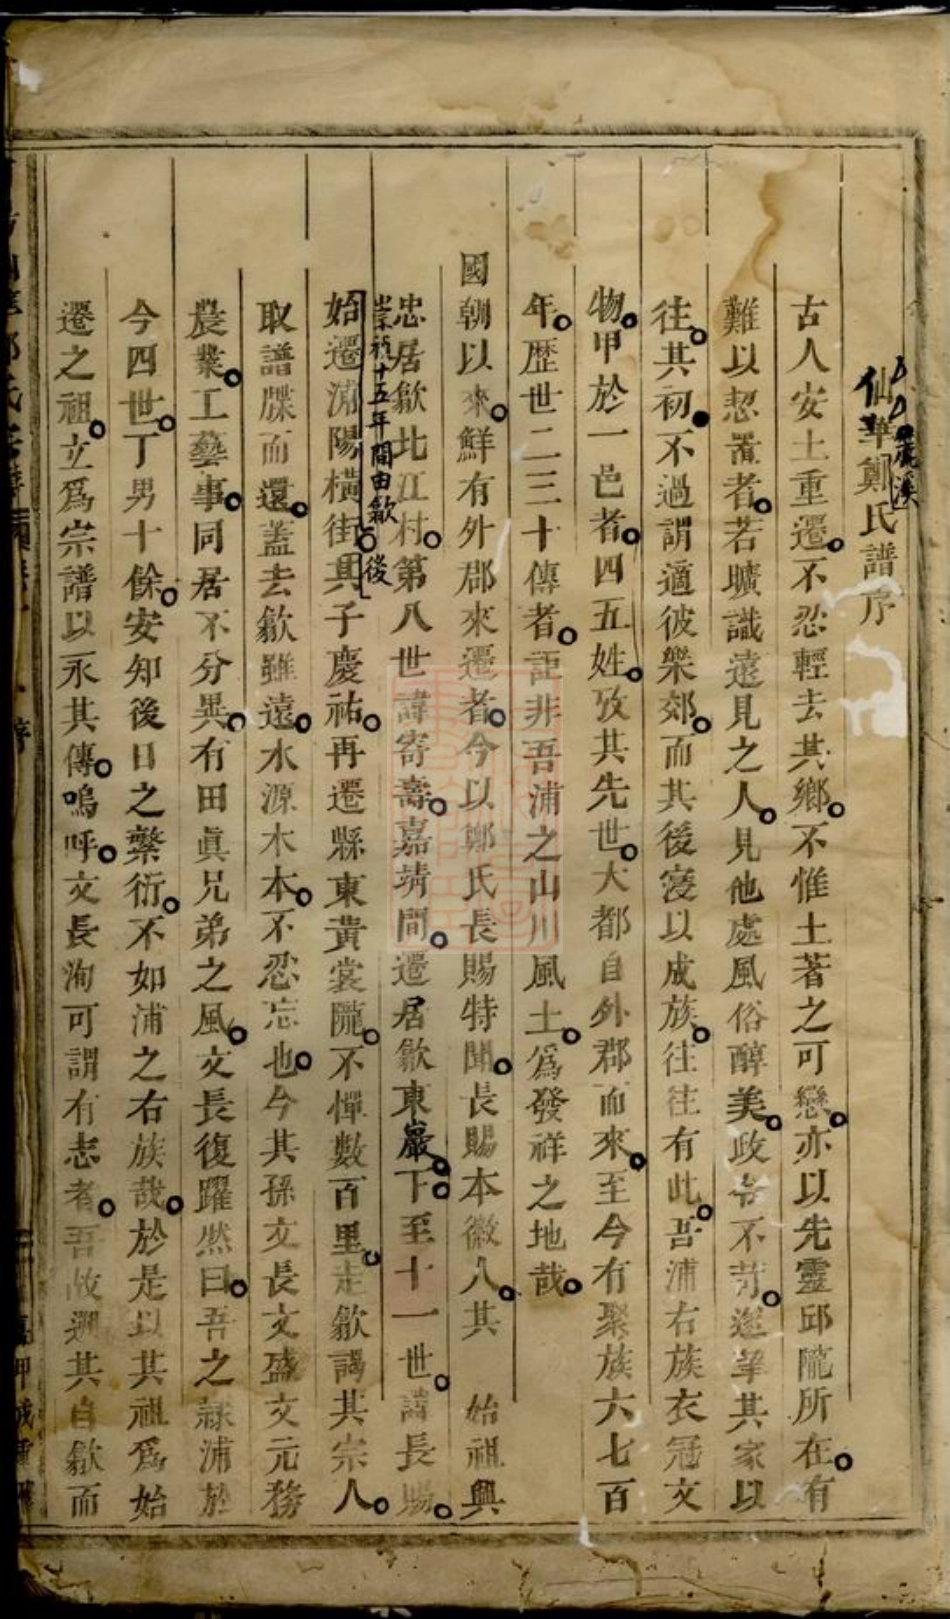 仙華鄭氏譜序
麗溪
古人安土重遷不忍輕去其鄉不惟土著之可戀亦以先靈邱隴所在有
難以恝置者若曠識遠見之人見他處風俗醇美政令不苛遂挈其家以
往其初不過謂適彼樂郊而其後寖以成族往往有此吾浦右族衣冠文
物甲於一邑者四五姓攷其先世大都自外郡而來至今有聚族六七百
年歷世二三十傳者詎非吾浦之山川風土為發祥之地哉
國朝以來鮮有外郡來遷者今以鄭氏長賜特聞長賜本徽人其 始祖興
忠居歙北江村第八世諱寄壽嘉靖間遷居歙東巖下至十一世諱長賜
崇禎十五年間由歙 後
始遷浦陽橫街其子慶祐再遷縣東黃裳隴不憚數百里走歙謁其宗人
取譜牒而還蓋去歙雖遠水源木本不忍忘也今其孫文長文盛文元務
農業工藝事同居不分異有田真兄弟之風文長復躍然曰吾之隸浦於
今四世丁男十餘安知後日之繁衍不如浦之右族哉於是以其祖為始
遷之祖立為宗譜以永其傳嗚呼文長洵可謂有志者吾故遡其自歙而